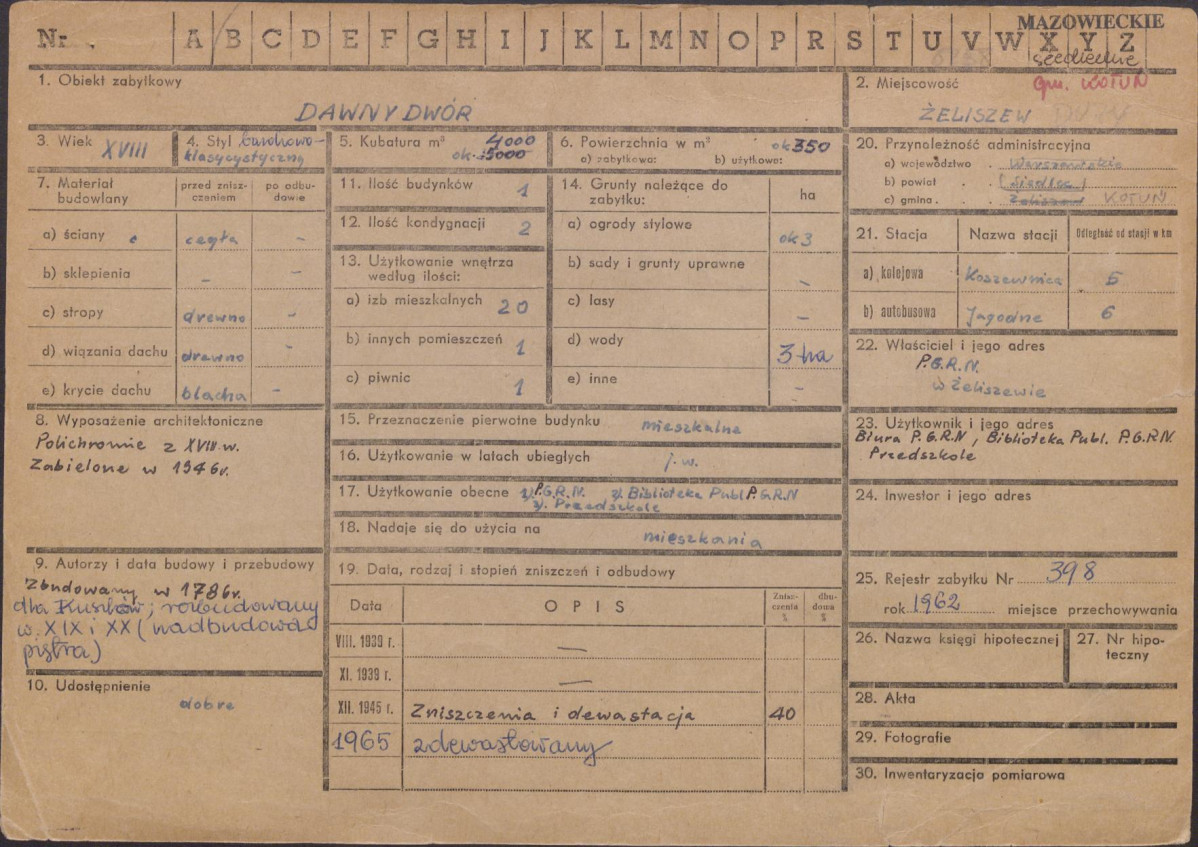 MAZOWIECKIE
Nr. A B C D E F G H I J K L M N O P R S T U V W X Y Z
siedleckie
1. Obiekt zabytkowy
DAWNY DWÓR
2. Miejscowość
gm. KOTUŃ
ŻELISZEW
3. Wiek XVIII
4. Styl barokowo-
klasycystyczny
5. Kubatura m³ 4000
ok. 5000
6. Powierzchnia w m² ok 350
a) zabytkowa: b) użytkowa:
7. Materiał budowlany
przed zniszczeniem
po odbudowie
a) ściany cegła –
b) sklepienia – –
c) stropy drewno –
d) wiązania dachu drewno –
e) krycie dachu blacha –
8. Wyposażenie architektoniczne
Polichromie z XVIII w.
Zabielone w 1946r.
9. Autorzy i data budowy i przebudowy
Zbudowany w 1786r.
dla Kuszlów; rozbudowany
w XIX i XX (nadbudowa
piętra)
10. Udostępnienie
dobre
11. Ilość budynków 1
12. Ilość kondygnacji 2
13. Użytkowanie wnętrza
według ilości:
a) izb mieszkalnych 20
b) innych pomieszczeń 1
c) piwnic 1
14. Grunty należące do
zabytku: ha
a) ogrody stylowe ok 3
b) sady i grunty uprawne –
c) lasy –
d) wody 3 ha
e) inne –
15. Przeznaczenie pierwotne budynku mieszkalne
16. Użytkowanie w latach ubiegłych j.w.
17. Użytkowanie obecne 1/. P.G.R.N. 2/. Biblioteka Publ P.G.R.N
3/. Przedszkole
18. Nadaje się do użycia na mieszkania
19. Data, rodzaj i stopień zniszczeń i odbudowy
Data OPIS Zniszczenia % dbudowa %
VIII. 1939 r. —
XI. 1939 r. —
XII. 1945 r. Zniszczenia i dewastacja 40
1965 zdewastowany
20. Przynależność administracyjna
a) województwo . Warszawskie
b) powiat . . (Siedlce)
c) gmina . . Żeliszew KOTUŃ
21. Stacja Nazwa stacji Odległość od stacji w km
a) kolejowa Koszewnica 5
b) autobusowa Jagodne 6
22. Właściciel i jego adres
P.G.R.N.
w Żeliszewie
23. Użytkownik i jego adres
Biura P.G.R.N, Biblioteka Publ. P.G.R.N.
Przedszkole
24. Inwestor i jego adres
25. Rejestr zabytku Nr 398
rok 1962 miejsce przechowywania
26. Nazwa księgi hipotecznej
27. Nr hipo-
teczny
28. Akta
29. Fotografie
30. Inwentaryzacja pomiarowa